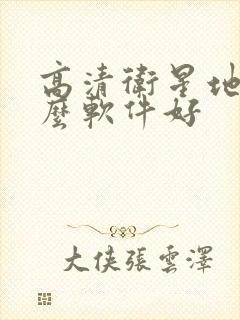 高清衛星地
麼軟件好
大俠張雲澤